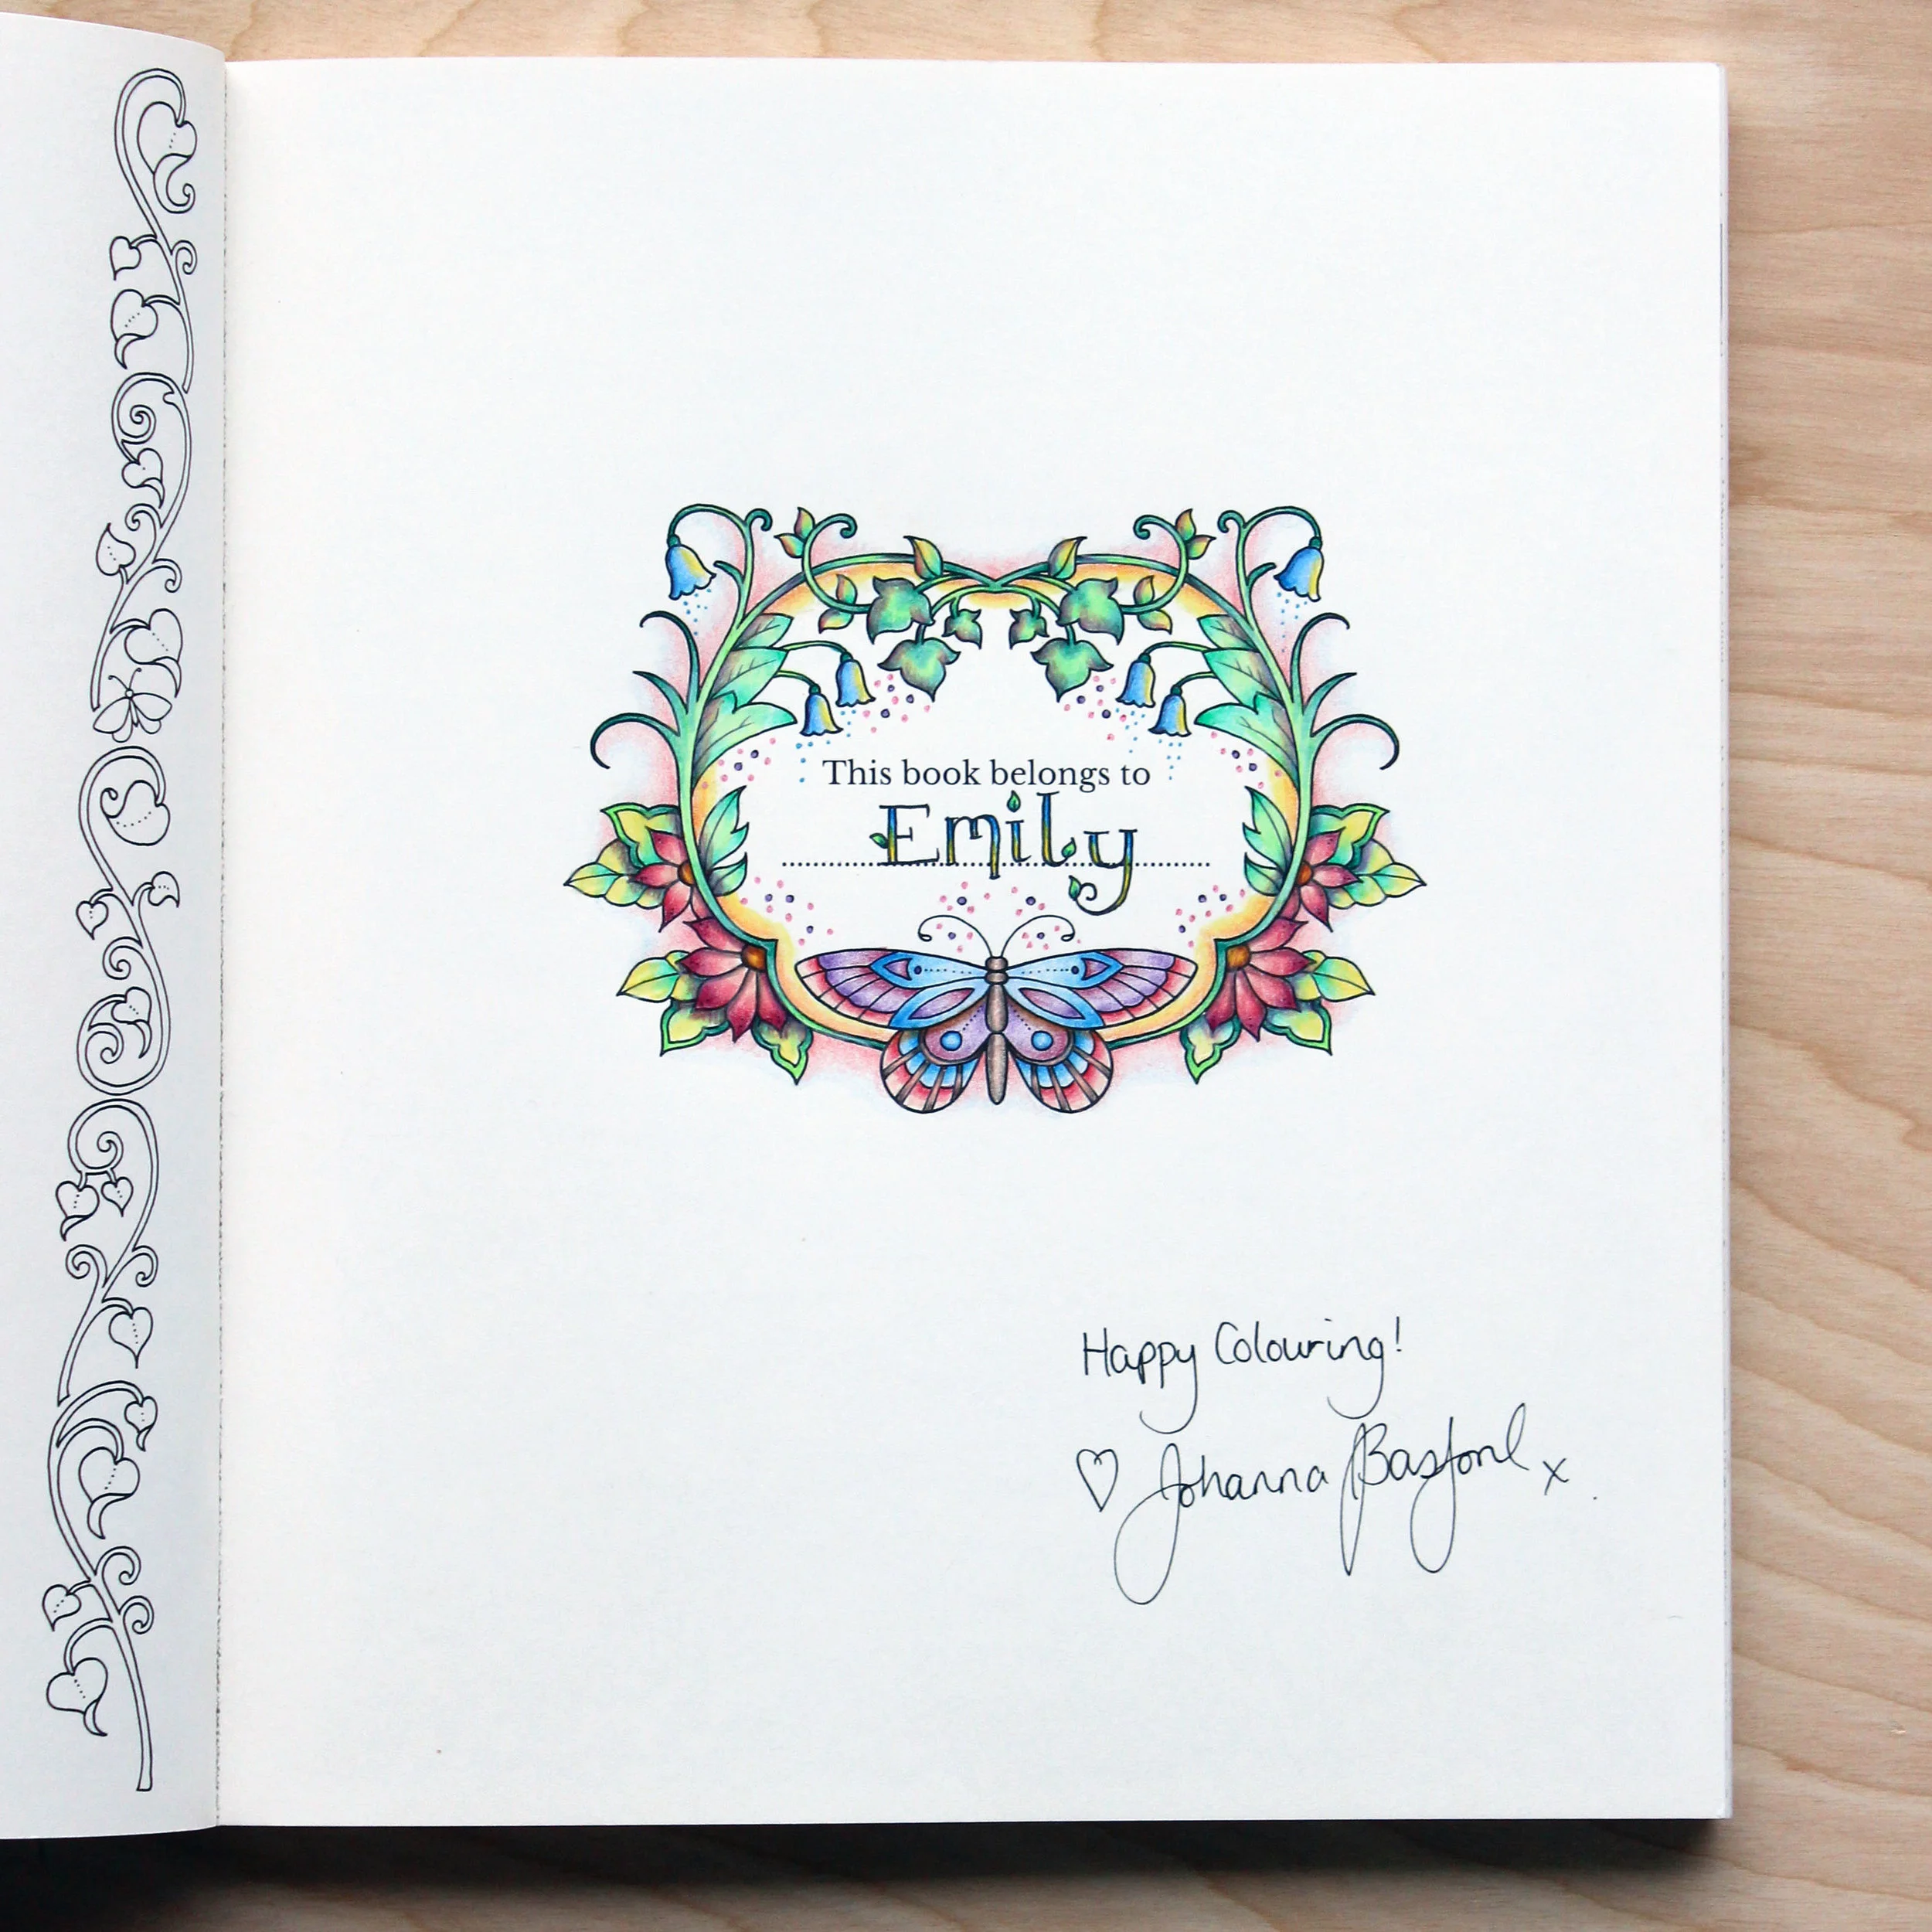 This book belongs to
Emily
Happy Colouring!
♡ Johanna Basford x